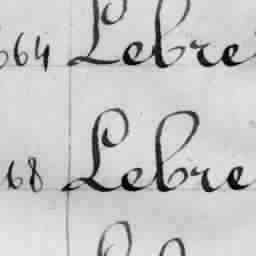 664 Lebre
68 Lebre